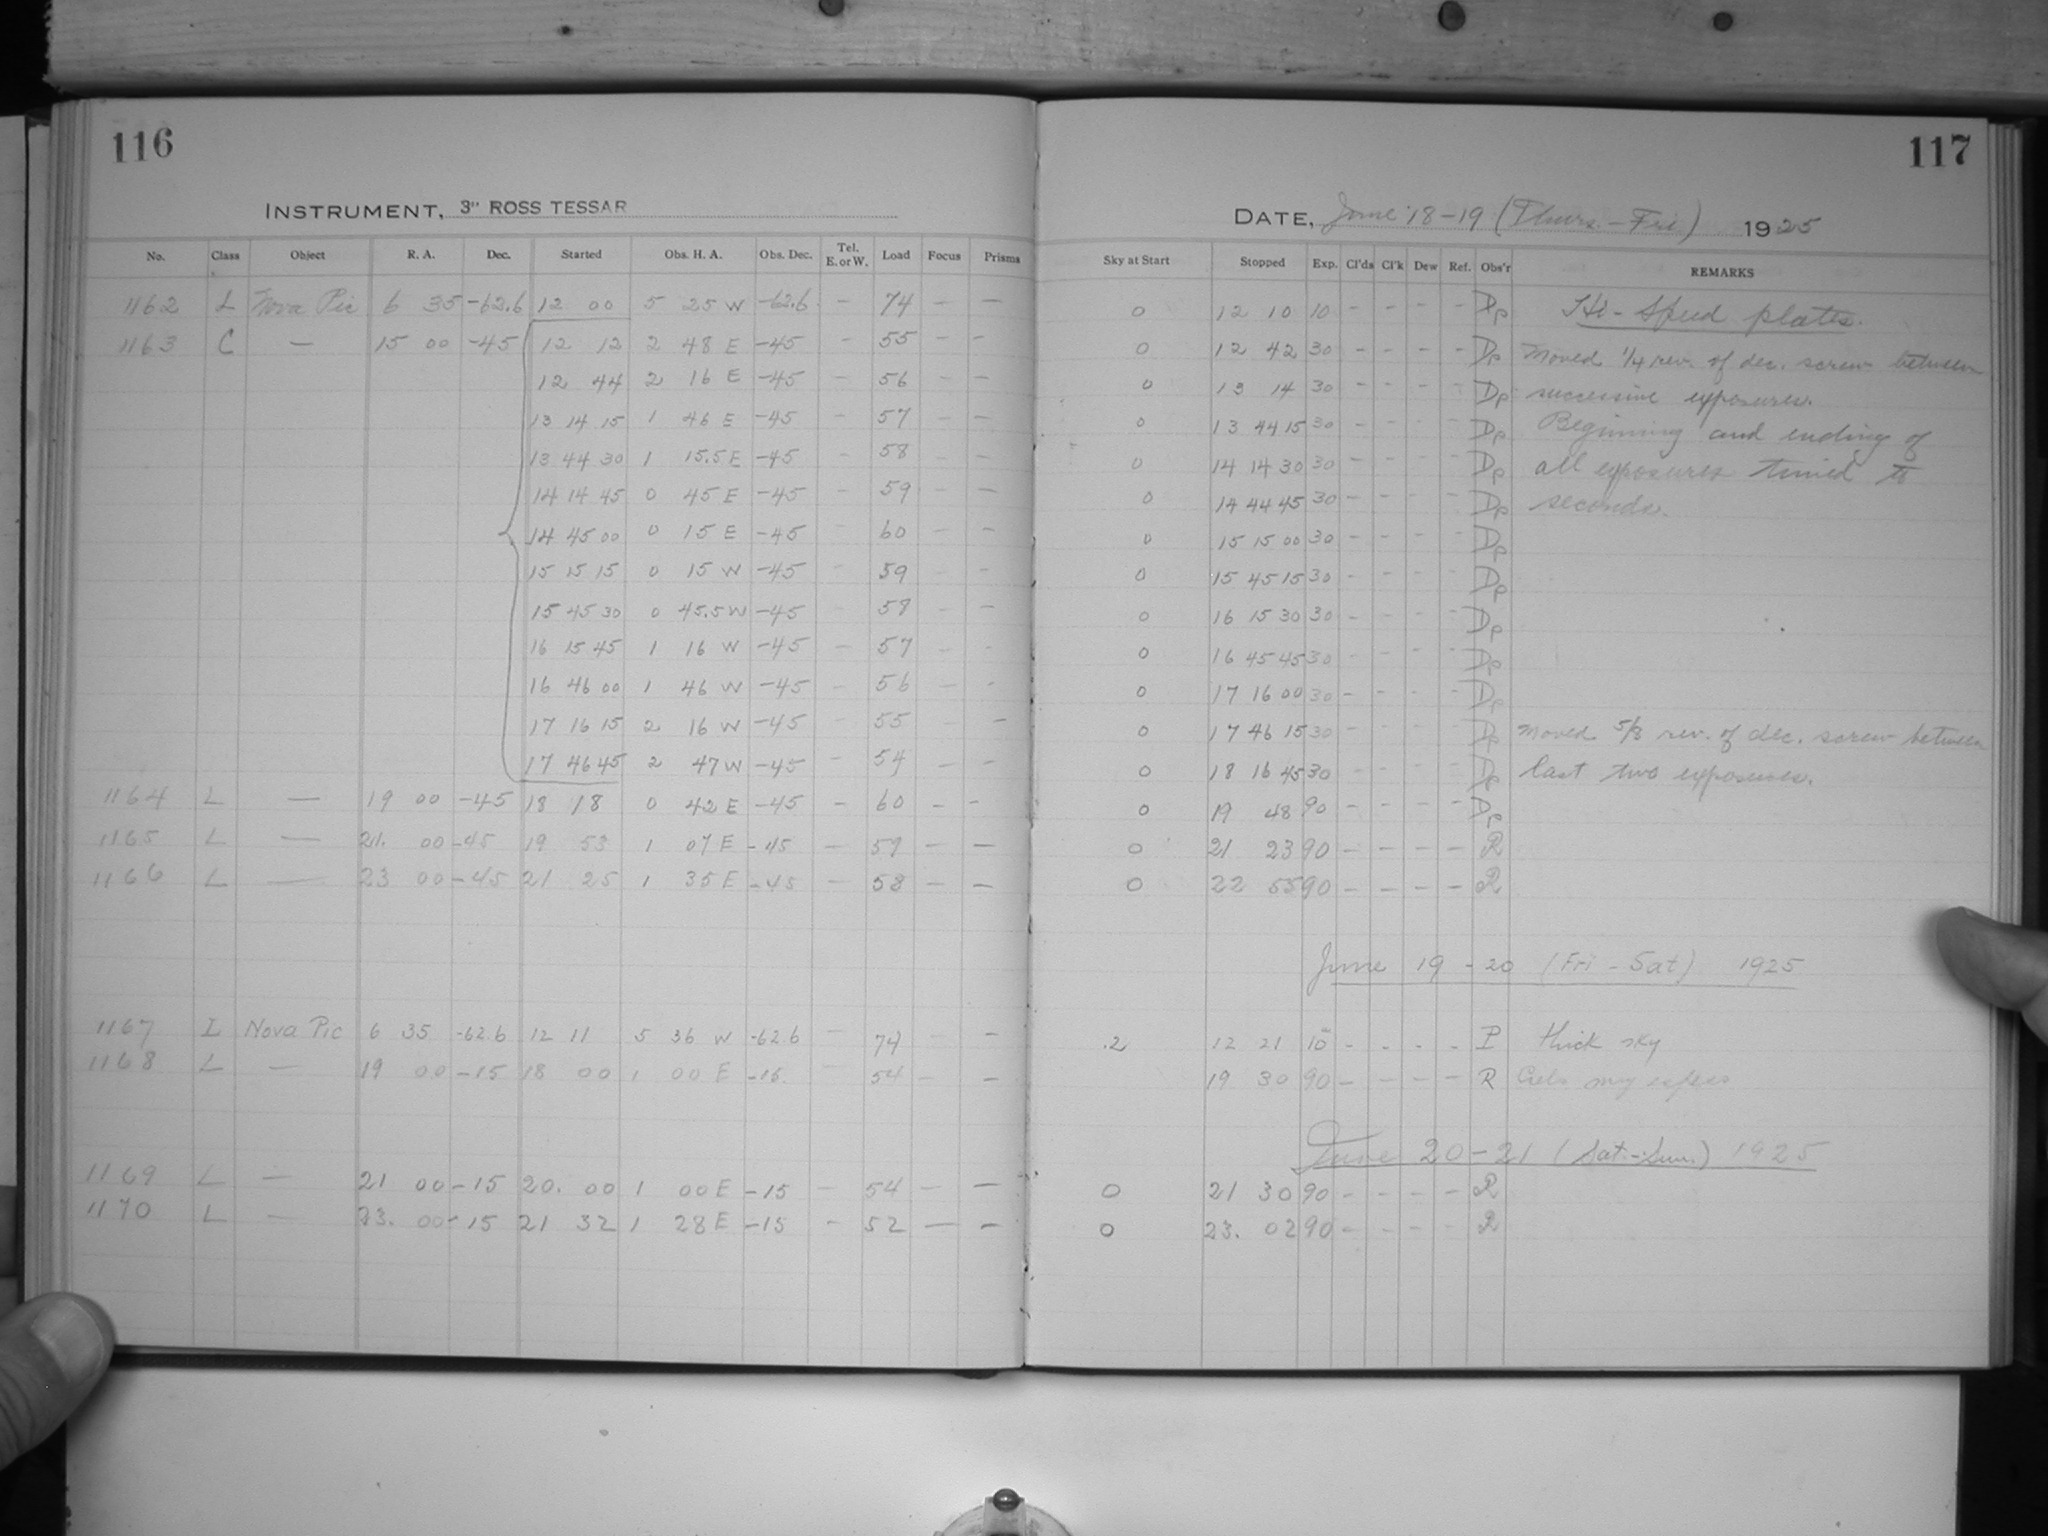 116
117
INSTRUMENT, 3" ROSS TESSAR
DATE, June 18-19 (Thurs.-Fri) 1925
No. Class Object R. A. Dec. Started Obs. H. A. Obs. Dec. Tel. E. or W. Load Focus Prisms Sky at Start Stopped Exp. Cl'ds Cl'k Dew Ref. Obs'r REMARKS
1162 L Nova Pic 6 35 -62.6 12 00 5 25 W -62.6 - 74 - - 0 12 10 10 - - - - Dp Hi-Speed plates.
1163 C - 15 00 -45 12 12 2 48 E -45 - 55 - - 0 12 42 30 - - - - Dp Moved 1/4 rev. of dec. screw between
12 44 2 16 E -45 - 56 - - 0 13 14 30 - - - - Dp successive exposures.
13 14 15 1 46 E -45 - 57 - - 0 13 44 15 30 - - - - Dp Beginning and ending of
13 44 30 1 15.5 E -45 - 58 - - 0 14 14 30 30 - - - - Dp all exposures timed to
14 14 45 0 45 E -45 - 59 - - 0 14 44 45 30 - - - - Dp seconds.
14 45 00 0 15 E -45 - 60 - - 0 15 15 00 30 - - - - Dp
15 15 15 0 15 W -45 - 59 - - 0 15 45 15 30 - - - - Dp
15 45 30 0 45.5 W -45 - 58 - - 0 16 15 30 30 - - - - Dp
16 15 45 1 16 W -45 - 57 - - 0 16 45 45 30 - - - - Dp
16 46 00 1 46 W -45 - 56 - - 0 17 16 00 30 - - - - Dp
17 16 15 2 16 W -45 - 55 - - 0 17 46 15 30 - - - - Dp Moved 5/8 rev. of dec. screw between
17 46 45 2 47 W -45 - 54 - - 0 18 16 45 30 - - - - Dp last two exposures.
1164 L - 19 00 -45 18 18 0 42 E -45 - 60 - - 0 19 48 90 - - - - Dp
1165 L - 21. 00 -45 19 53 1 07 E -45 - 59 - - 0 21 23 90 - - - - R
1166 L - 23 00 -45 21 25 1 35 E -45 - 58 - - 0 22 55 90 - - - - R
June 19-20 (Fri-Sat) 1925
1167 I Nova Pic 6 35 -62.6 12 11 5 36 W -62.6 - 74 - - .2 12 21 10 - - - - P thick sky
1168 L - 19 00 -15 18 00 1 00 E -16 - 54 - - 19 30 90 - - - - R
June 20-21 (Sat.-Sun.) 1925
1169 L - 21 00 -15 20. 00 1 00 E -15 - 54 - - 0 21 30 90 - - - - R
1170 L - 23. 00 -15 21 32 1 28 E -15 - 52 - - 0 23. 02 90 - - - - R